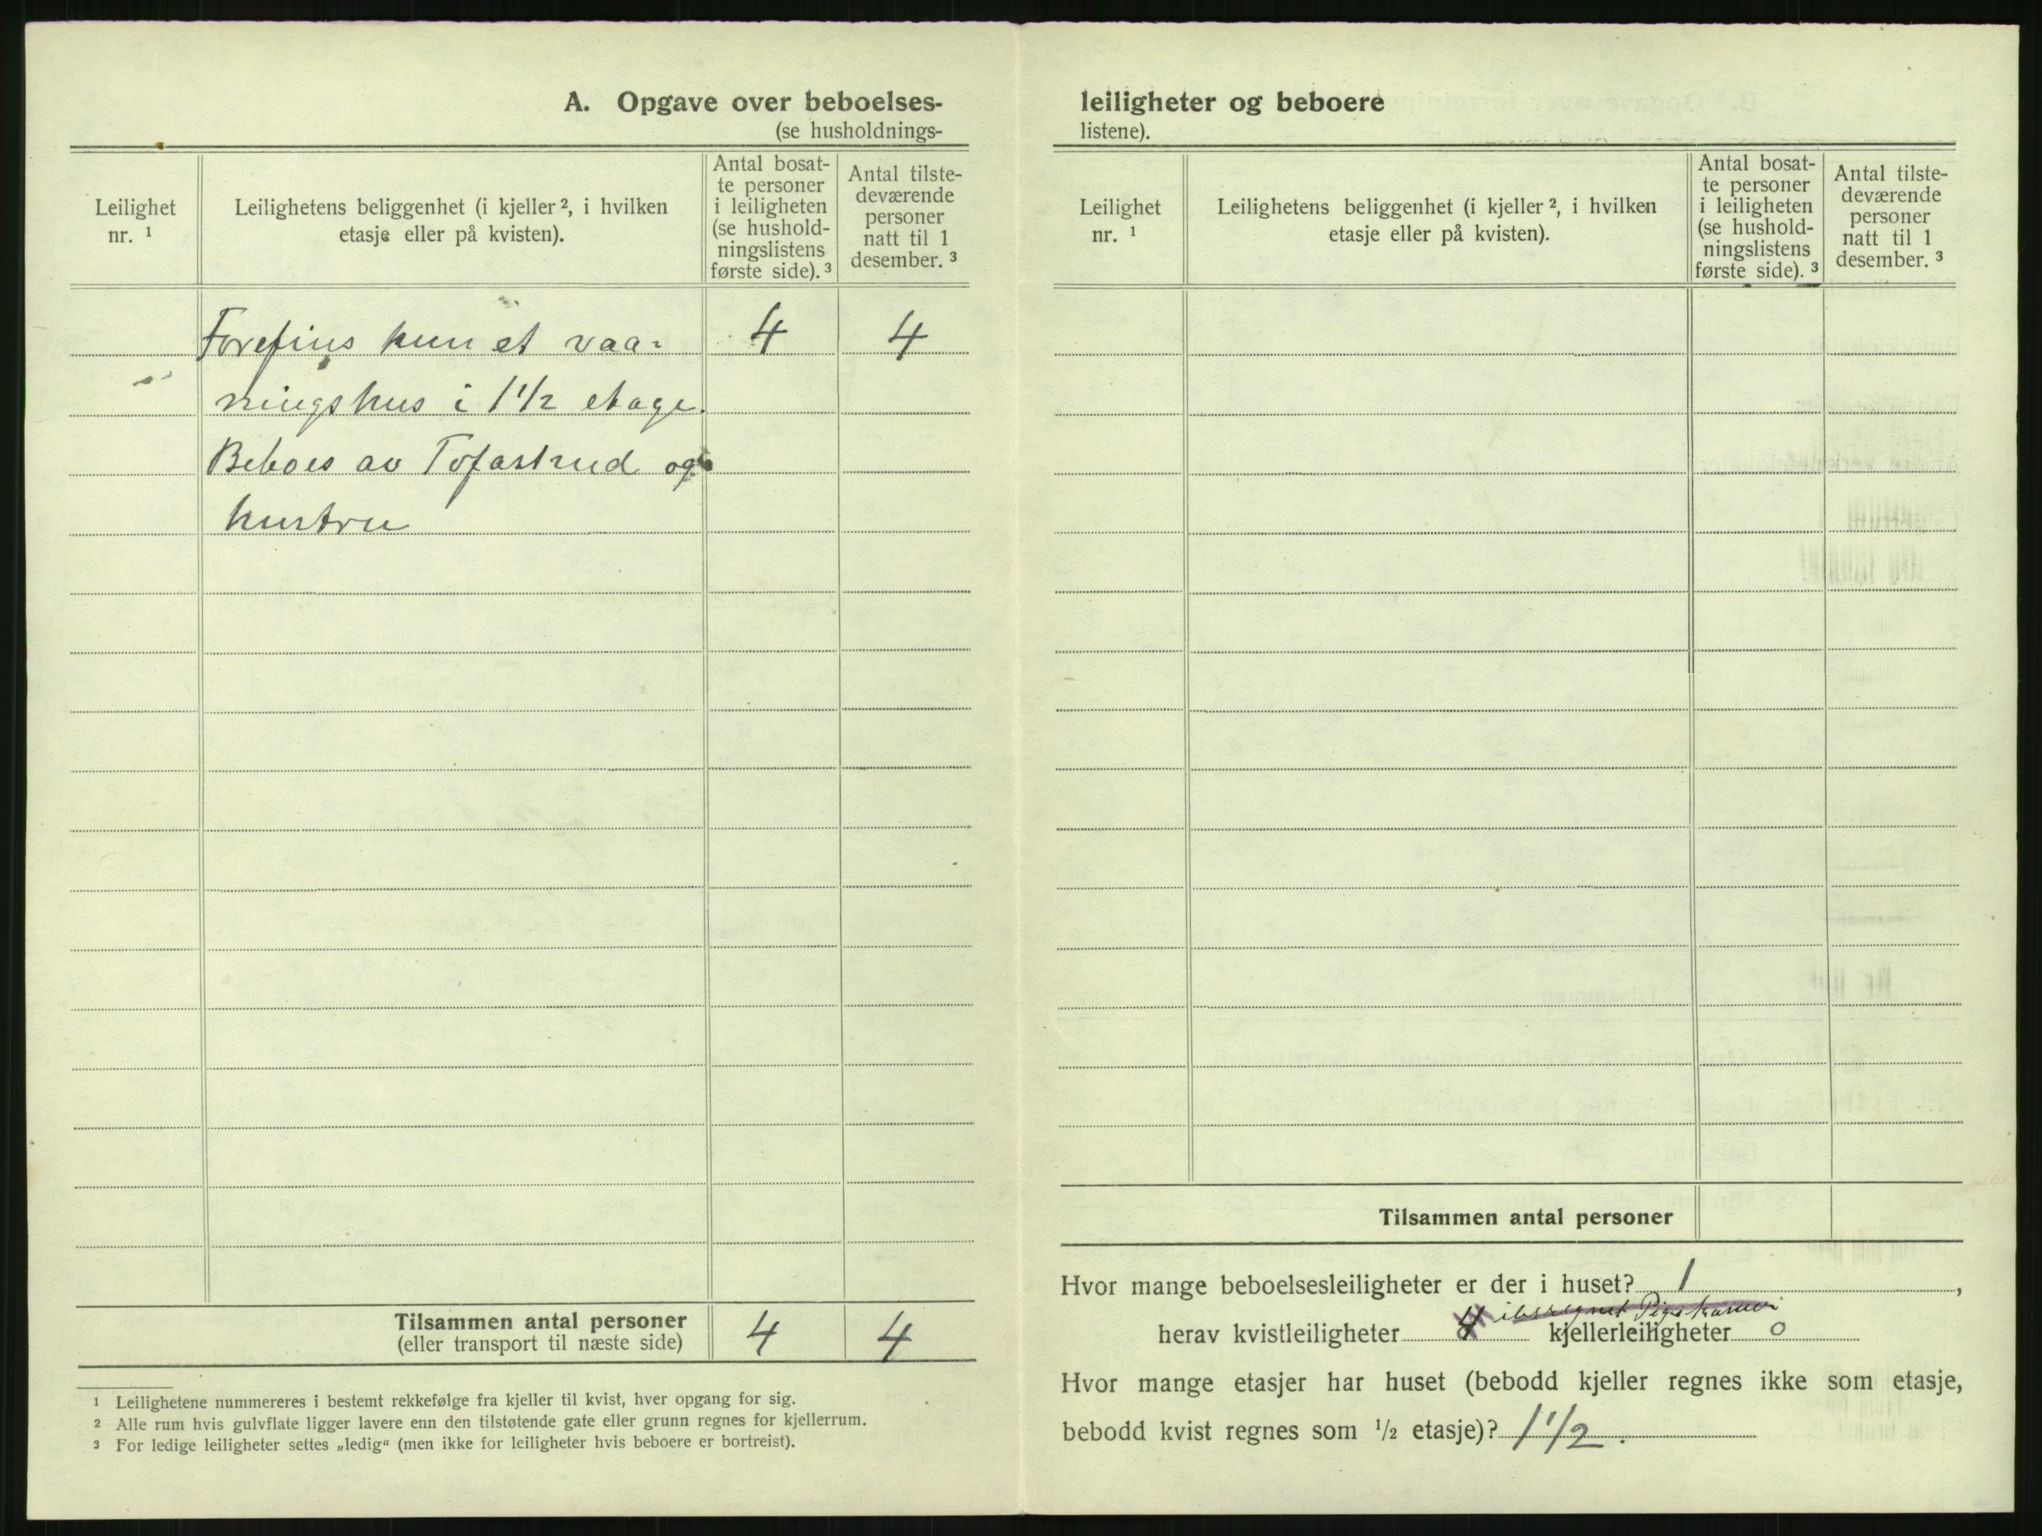 A. Opgave over beboelses-
(se husholdnings-
Leilighet
nr. ¹
Leilighetens beliggenhet (i kjeller ², i hvilken
etasje eller på kvisten).
Antal bosat-
te personer
i leiligheten
(se hushold-
ningslistens
første side). ³
Antal tilste-
deværende
personer
natt til 1
desember. ³
Forefins kun et vaa- 4 4
ningshus i 1 1/2 etage.
Beboes av Tofastrud og
hustru
Tilsammen antal personer 4 4
(eller transport til næste side)
¹ Leilighetene nummereres i bestemt rekkefølge fra kjeller til kvist, hver opgang for sig.
² Alle rum hvis gulvflate ligger lavere enn den tilstøtende gate eller grunn regnes for kjellerrum.
³ For ledige leiligheter settes „ledig“ (men ikke for leiligheter hvis beboere er bortreist).
leiligheter og beboere
listene).
Leilighet
nr. ¹
Leilighetens beliggenhet (i kjeller ², i hvilken
etasje eller på kvisten).
Antal bosat-
te personer
i leiligheten
(se hushold-
ningslistens
første side). ³
Antal tilste-
deværende
personer
natt til 1
desember. ³
Tilsammen antal personer
Hvor mange beboelsesleiligheter er der i huset? 1,
herav kvistleiligheter kjellerleiligheter 0
Hvor mange etasjer har huset (bebodd kjeller regnes ikke som etasje,
bebodd kvist regnes som 1/2 etasje)? 1 1/2.